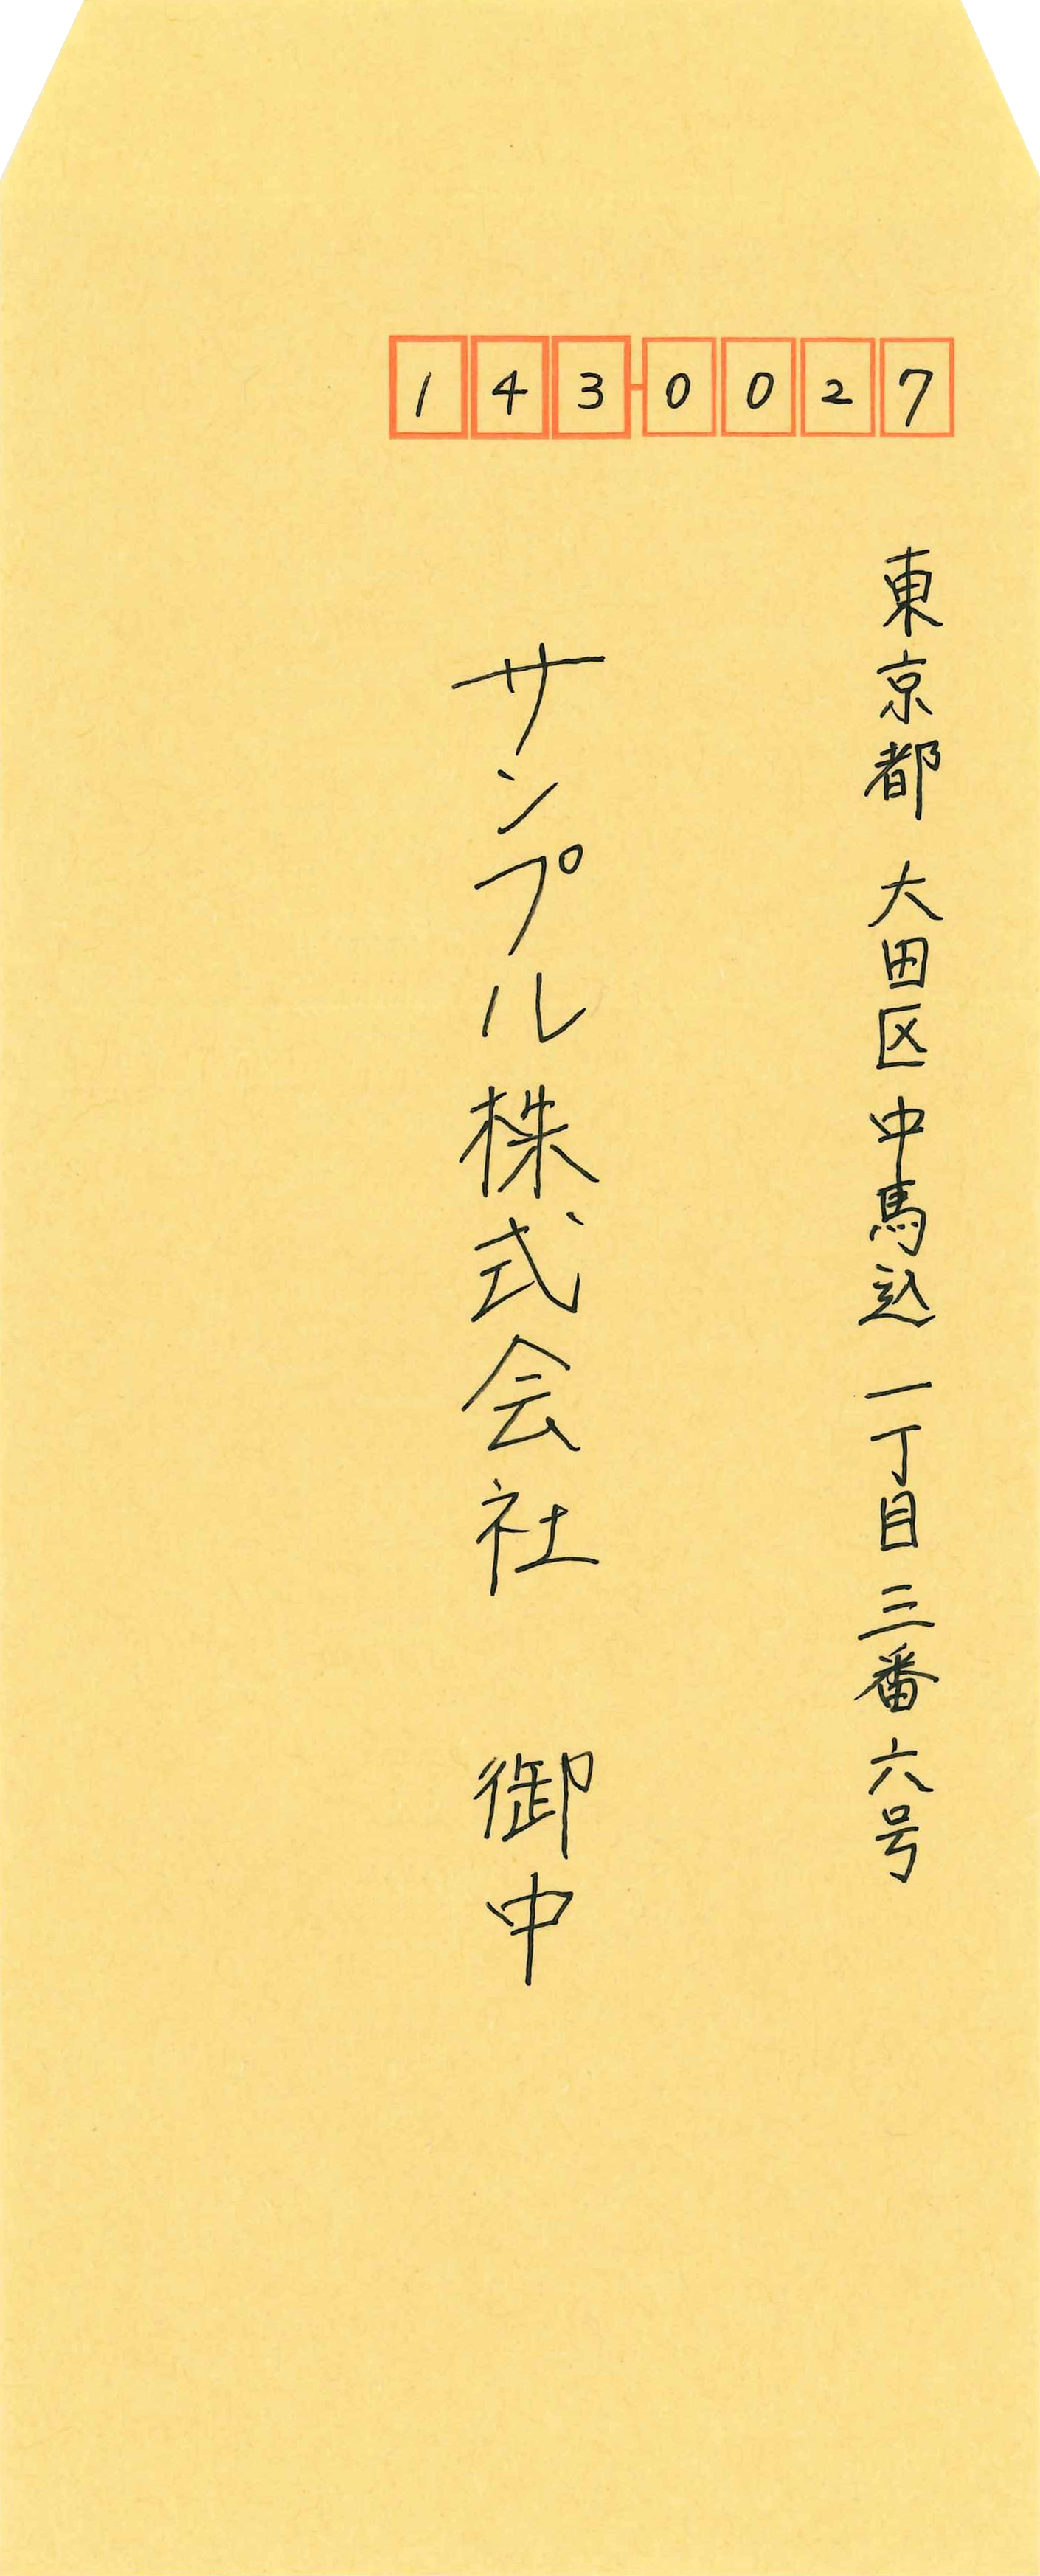 143-0027
東京都 大田区 中馬込 一丁目 三番 六号
サンプル株式会社 御中